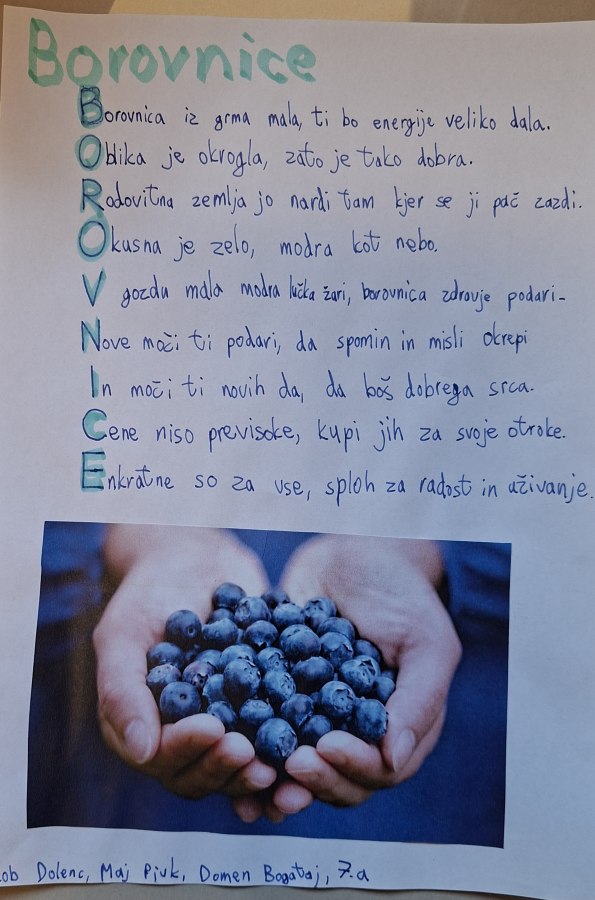 Borovnice
Borovnica iz grma mala, ti bo energije veliko dala.
Oblika je okrogla, zato je tako dobra.
Rodovitna zemlja jo nardi tam kjer se ji pač zazdi.
Okusna je zelo, modra kot nebo.
V gozdu mala modra lučka žari, borovnica zdravje podari-
Nove moči ti podari, da spomin in misli okrepi
In moči ti novih da, da boš dobrega srca.
Cene niso previsoke, kupi jih za svoje otroke.
Enkratne so za vse, sploh za radost in uživanje.
ob Dolenc, Maj Pivk, Domen Bogataj, 7.a